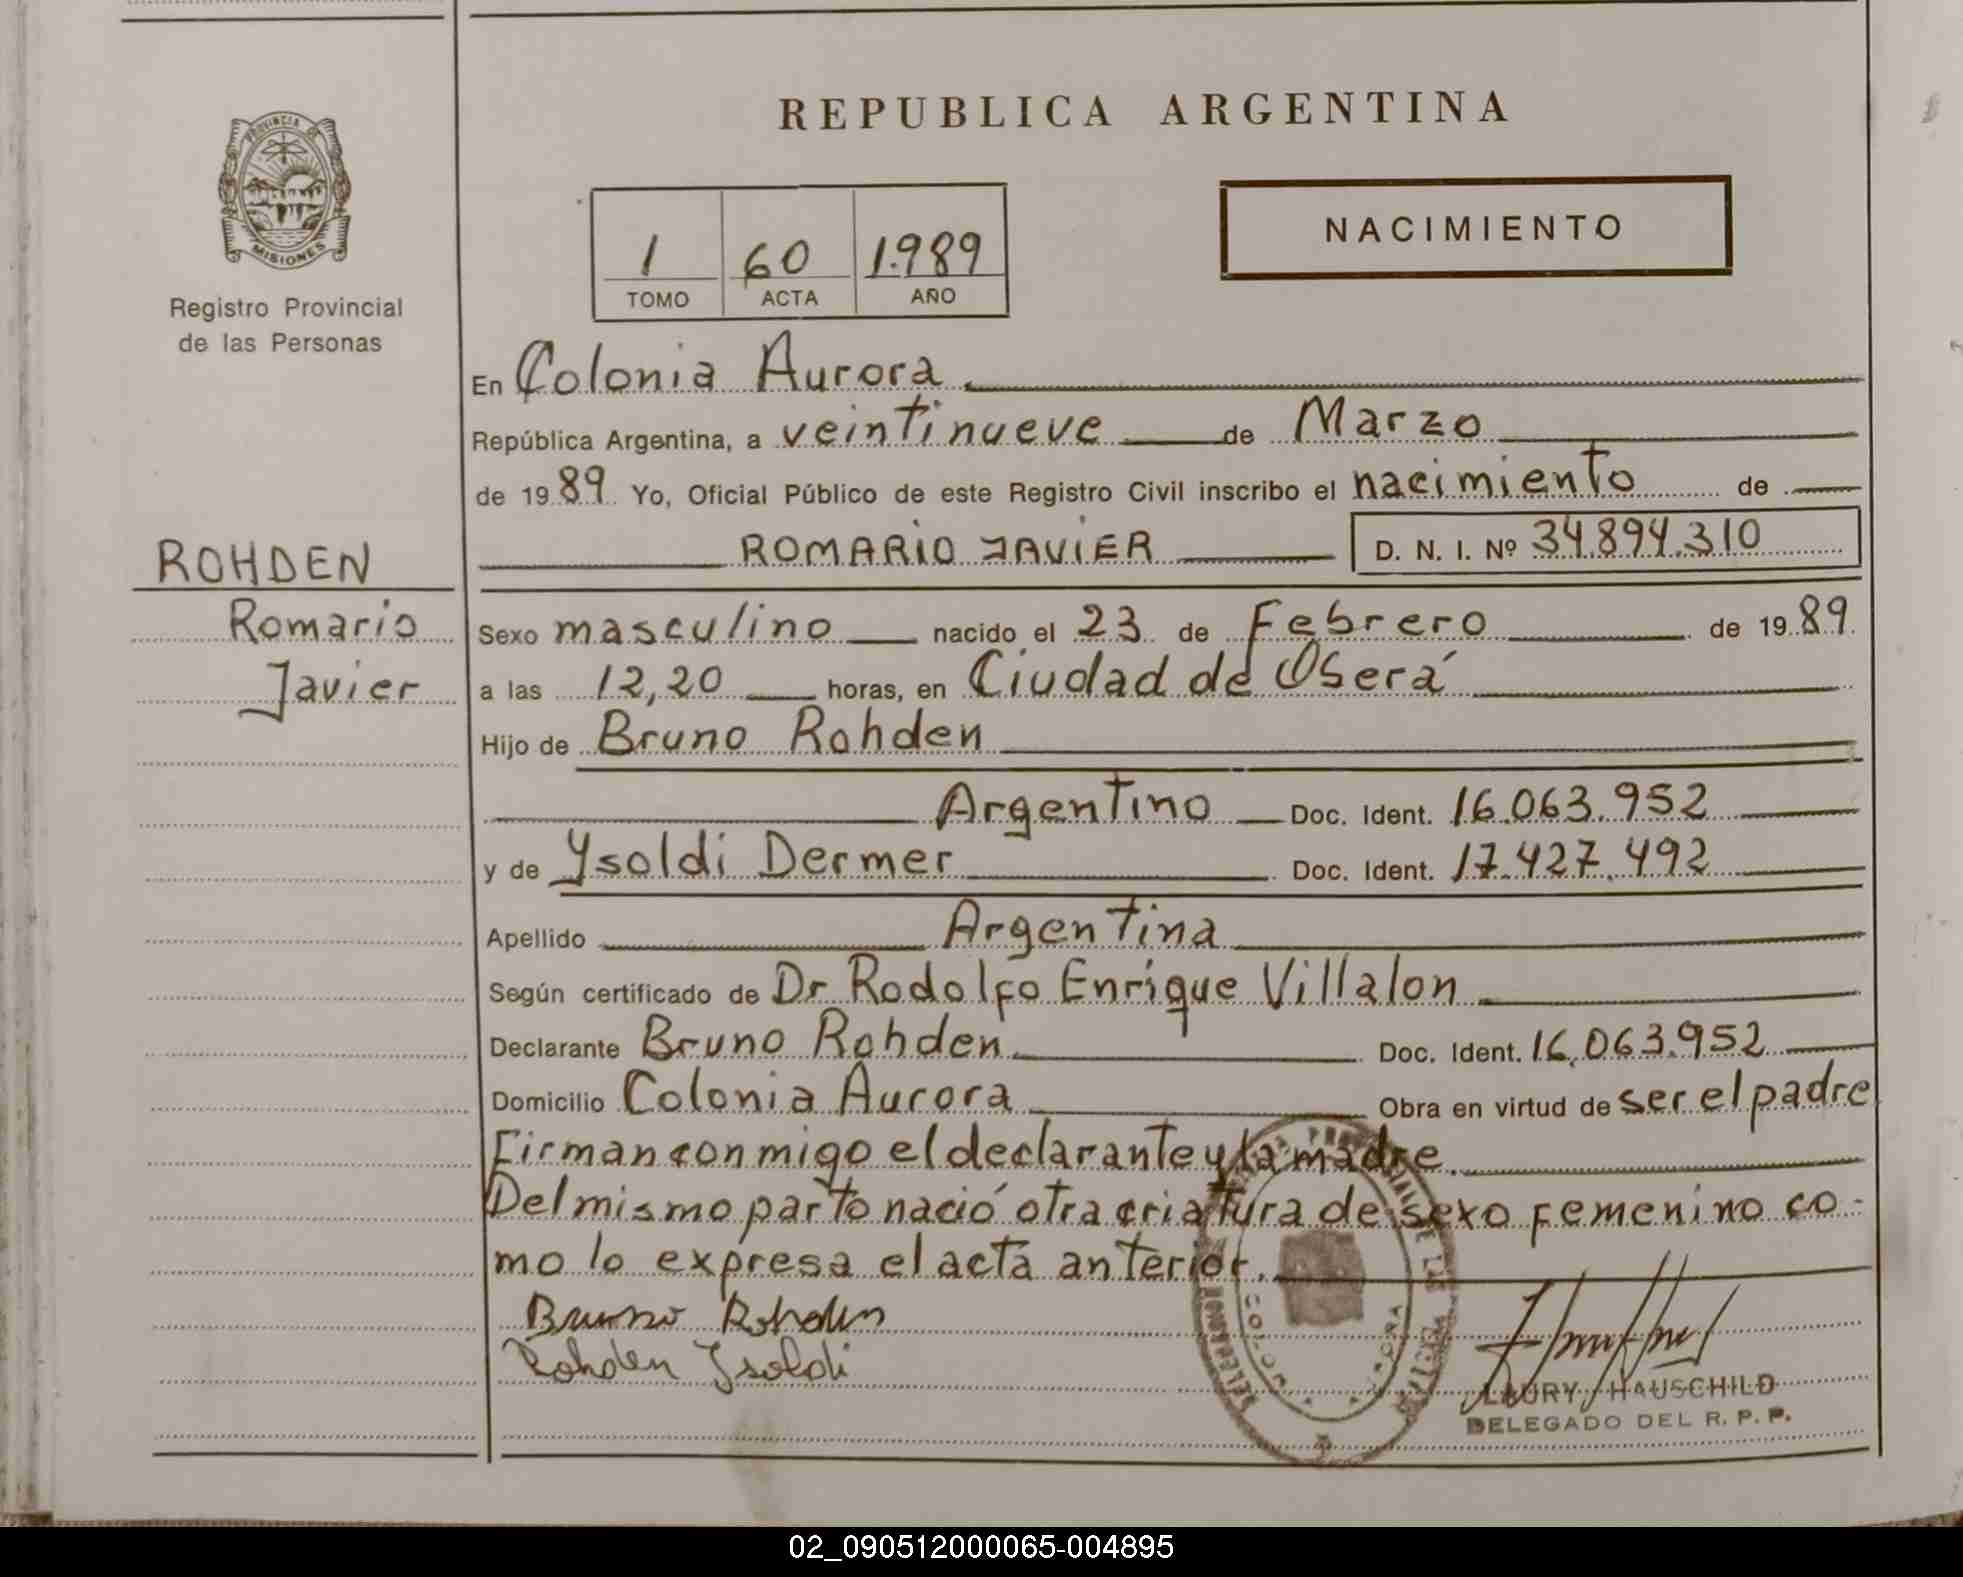 REPUBLICA ARGENTINA
PROVINCIA DE
MISIONES
Registro Provincial
de las Personas
NACIMIENTO
1 60 1.989
TOMO ACTA AÑO
En Colonia Aurora
República Argentina, a veintinueve de Marzo
de 1989 Yo, Oficial Público de este Registro Civil inscribo el nacimiento de
ROMARIO JAVIER D. N. I. Nº 34.894.310
ROHDEN
Romario
Javier
Sexo masculino nacido el 23 de Febrero de 1989
a las 12,20 horas, en Ciudad de Oberá
Hijo de Bruno Rohden
Argentino Doc. Ident. 16.063.952
y de Ysoldi Dermer Doc. Ident. 17.427.492
Apellido Argentina
Según certificado de Dr Rodolfo Enrique Villalon
Declarante Bruno Rohden Doc. Ident. 16.063.952
Domicilio Colonia Aurora Obra en virtud de ser el padre
Firman conmigo el declarante y la madre.
Del mismo parto nació otra criatura de sexo femenino co-
mo lo expresa el acta anterior.
Bruno Rohden
Rohden Ysoldi
COLONIA AURORA
LAURY HAUSCHILD
DELEGADO DEL R. P. P.
02_090512000065-004895